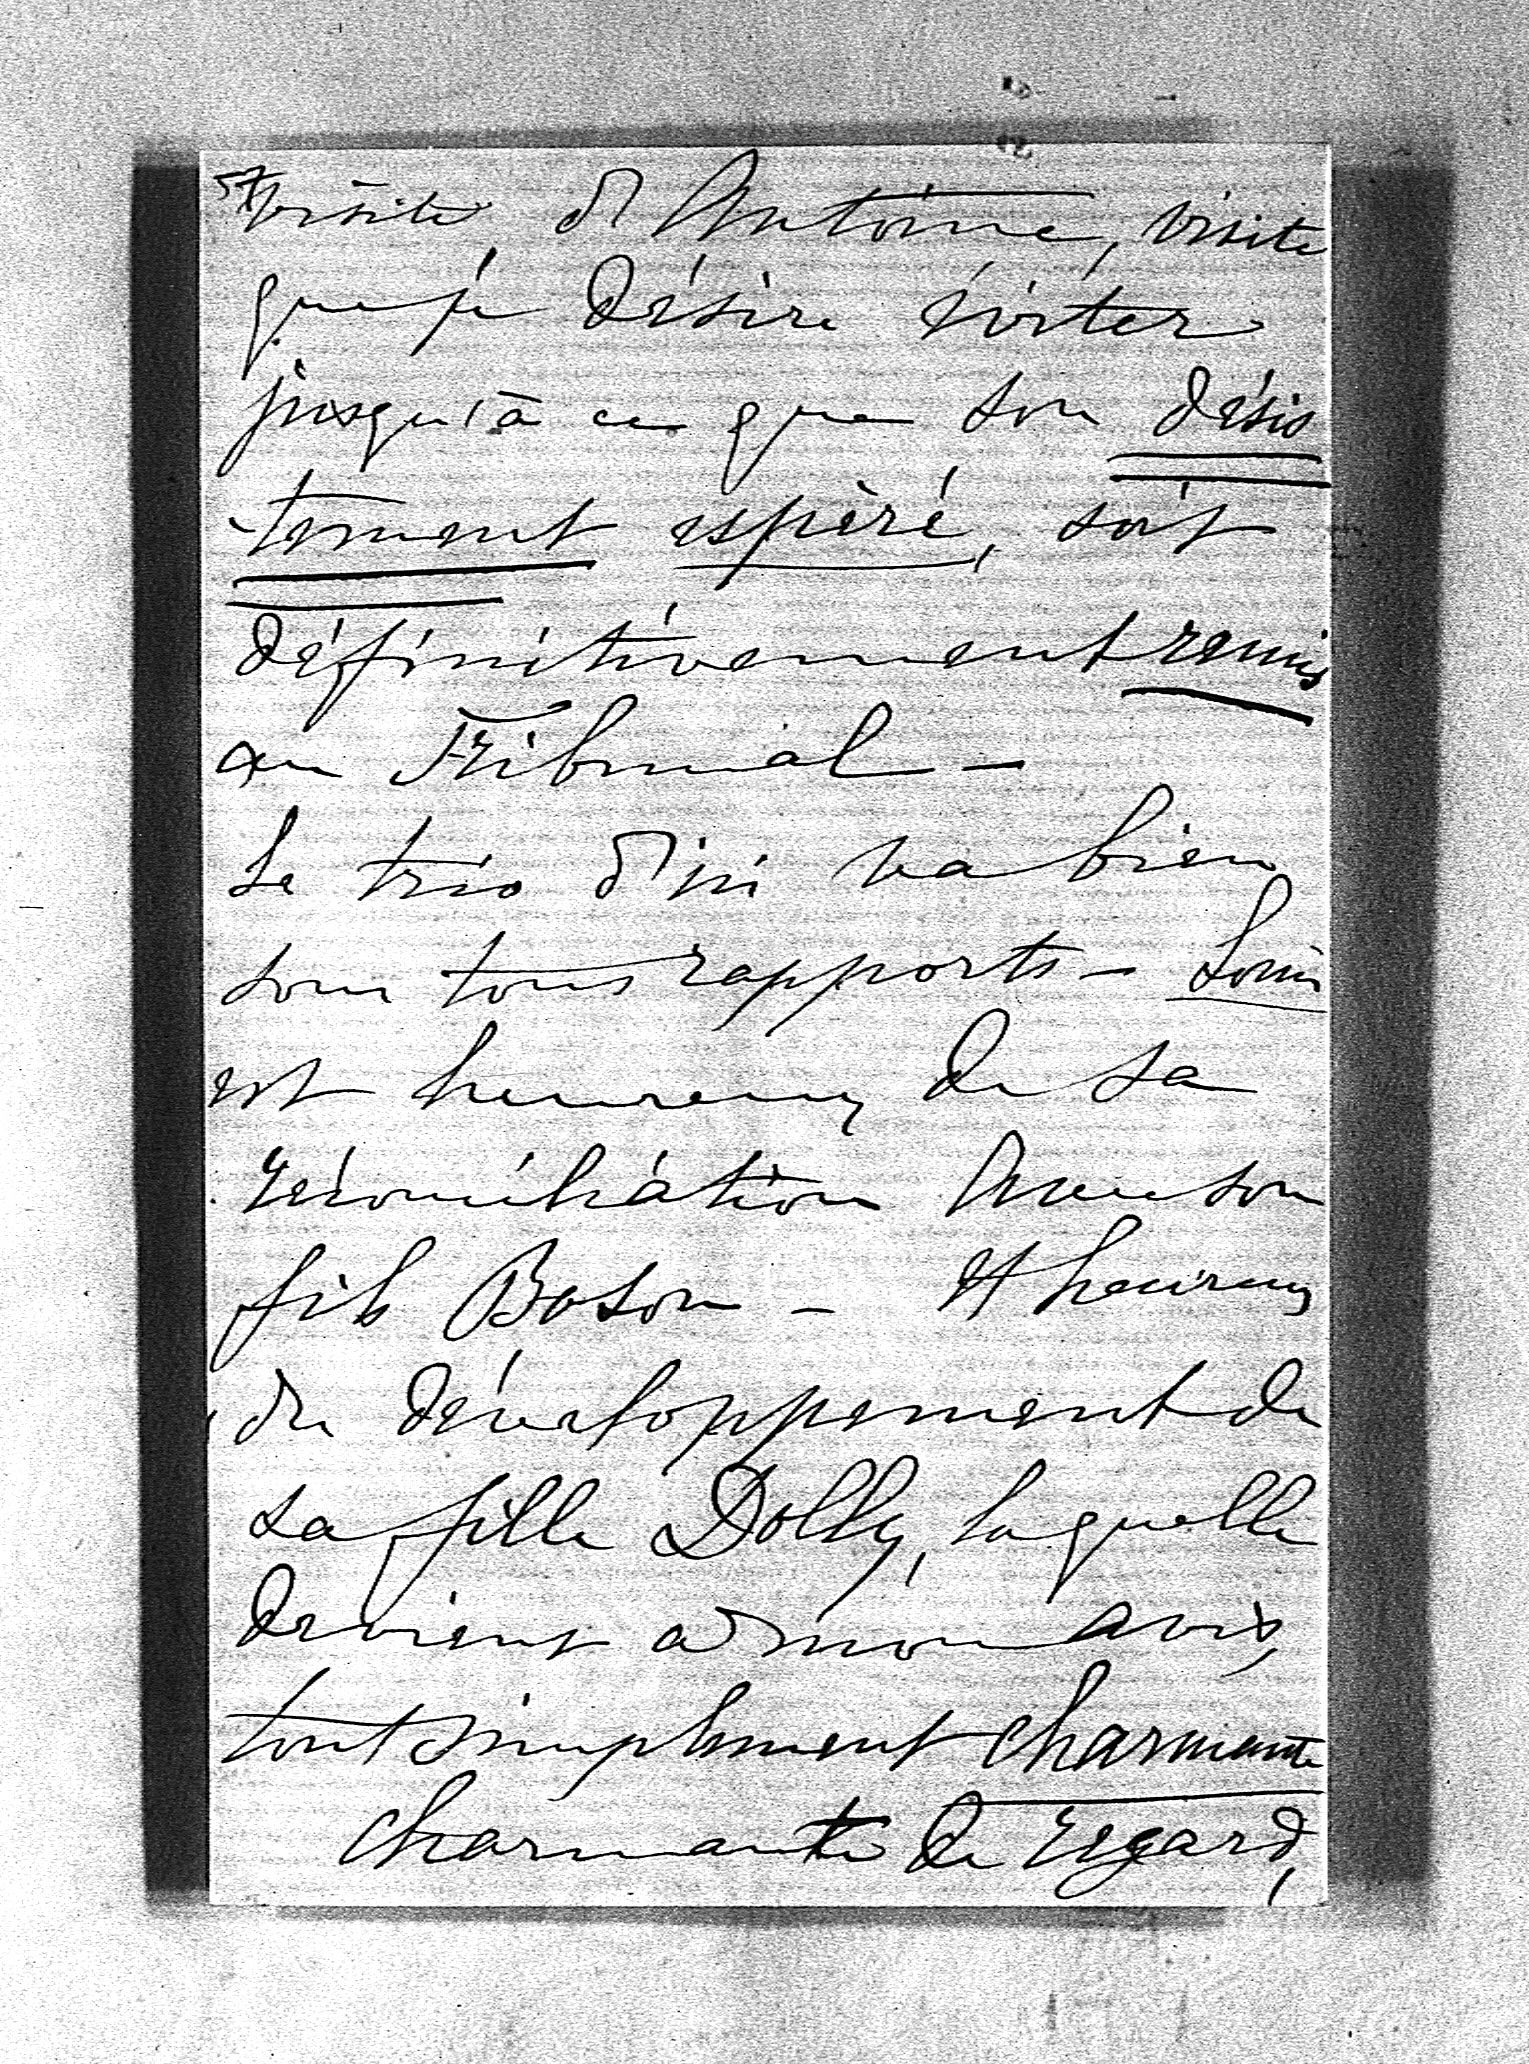 visite d'Antoine, visite
que je désire éviter
jusqu'à ce que son désis
-tement espéré, soit
définitivement remis
au Tribunal -
Le trio d'ici va bien
sous tous rapports - Louis
est heureux de sa
réconciliation avec son
fils Boson - et heureux
du développement de
sa fille Dolly, laquelle
devient à mon avis,
tout simplement charmante
charmante de regard,